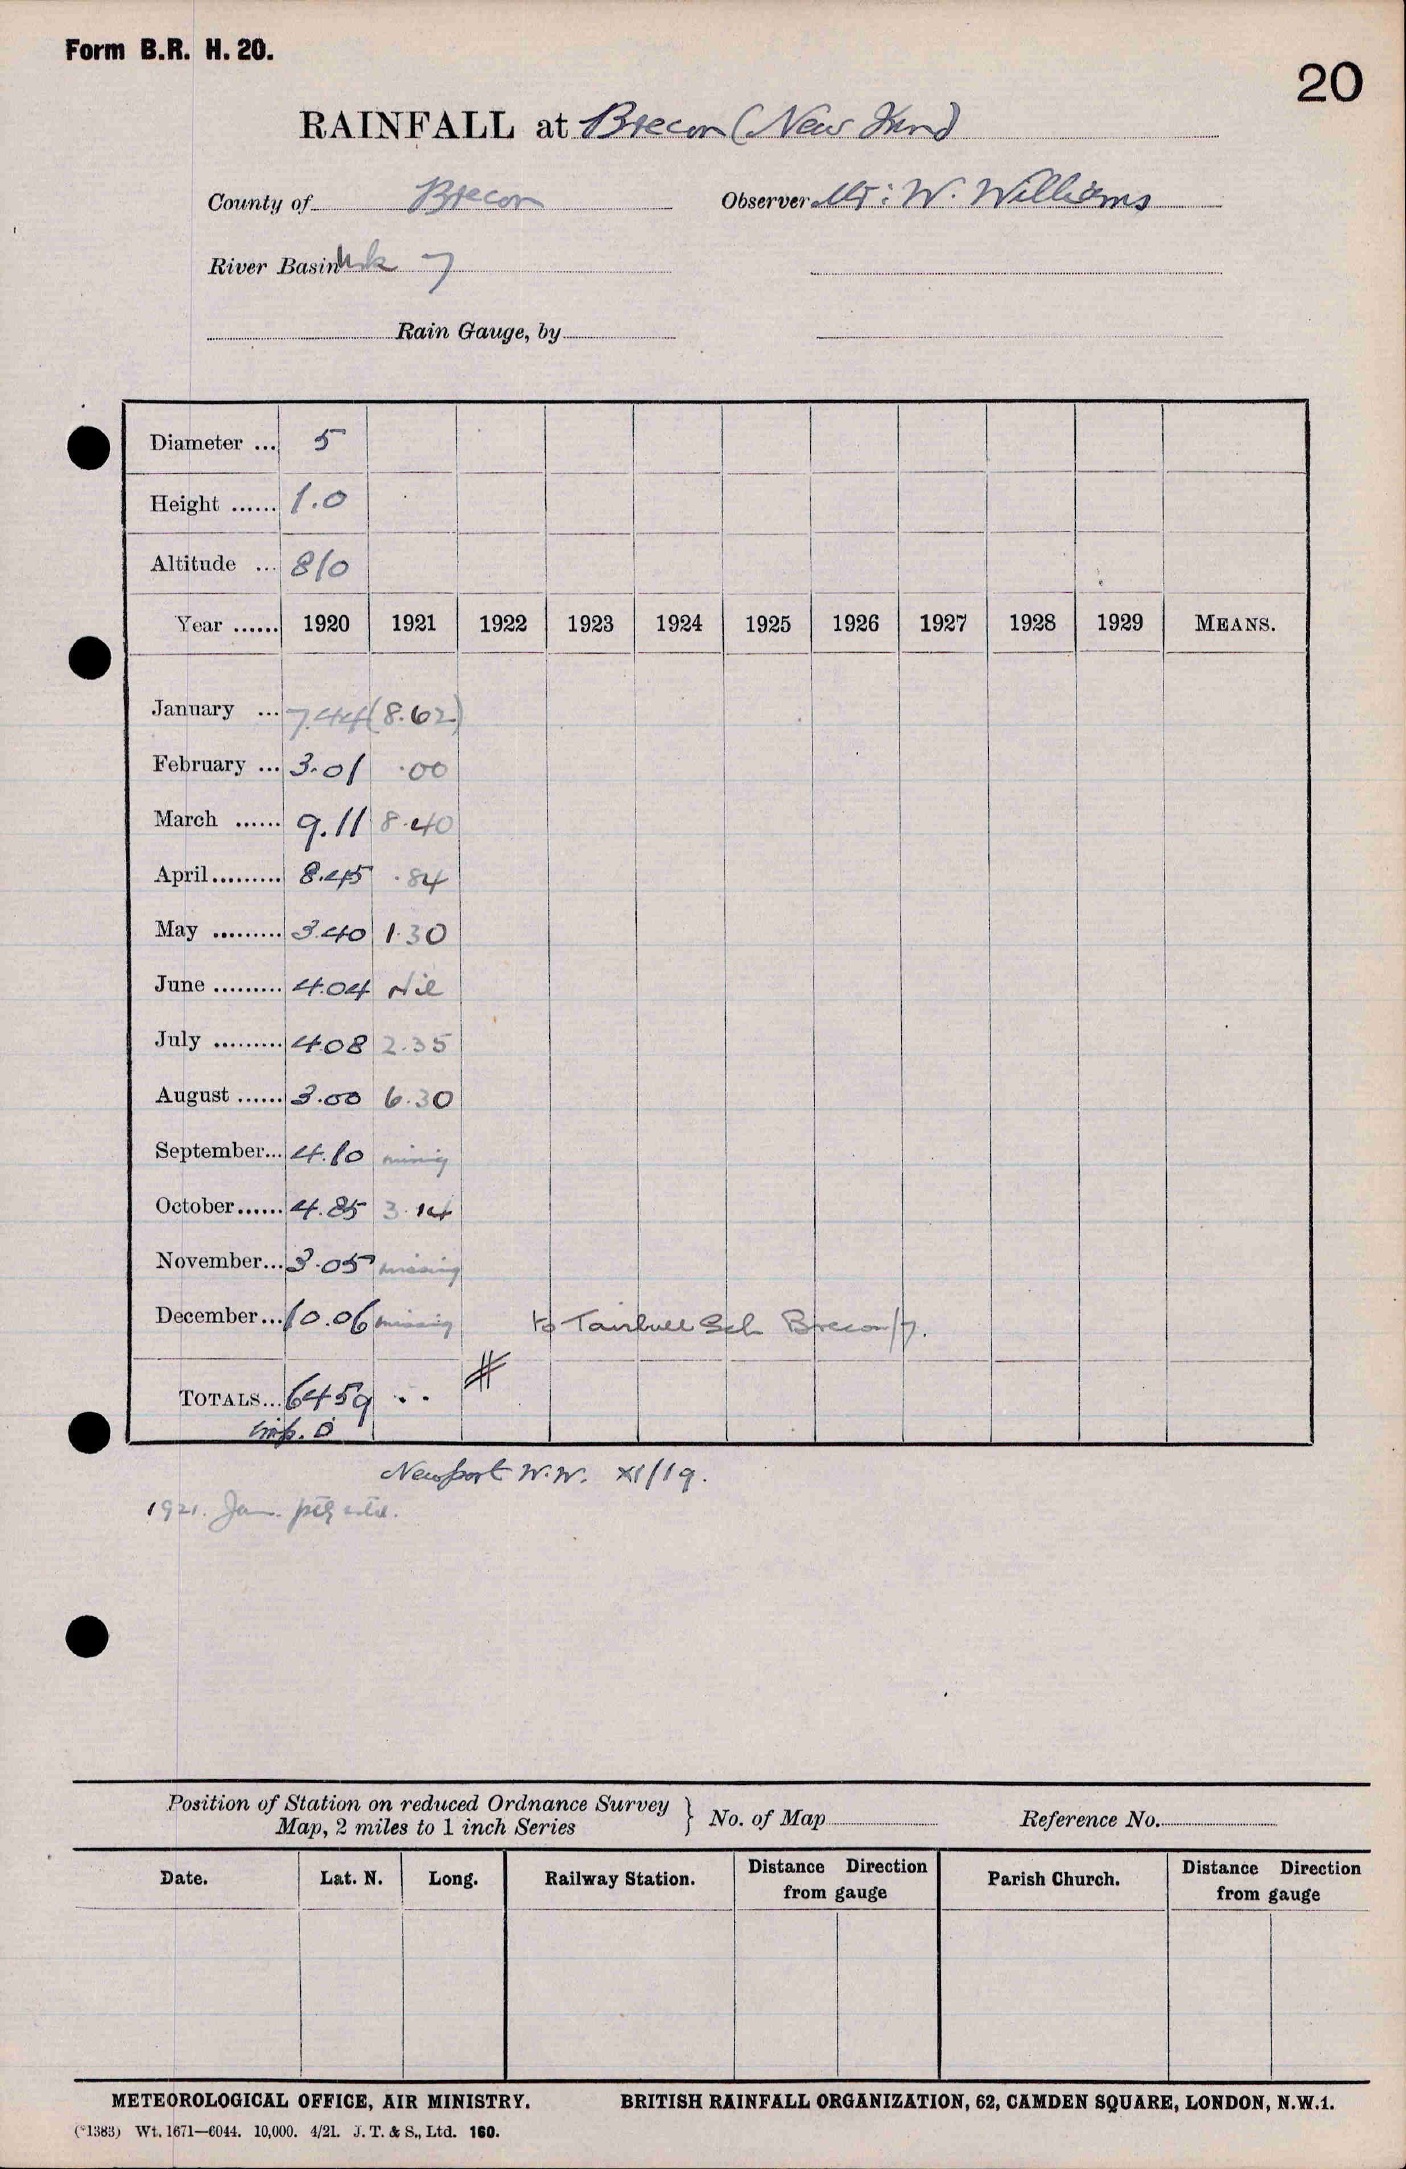 Form B.R. H. 20.
20
RAINFALL at Brecon (New Inn)
County of Brecon Observer Mr: W. Williams
River Basin Usk 7
Rain Gauge, by
Diameter ... 5
Height ...... 1.0
Altitude ... 810
Year ...... 1920 1921 1922 1923 1924 1925 1926 1927 1928 1929 MEANS.
January ... 7.44 (8.62)
February ... 3.01 .00
March ...... 9.11 8.40
April ......... 8.45 .84
May ......... 3.40 1.30
June ......... 4.04 Nil
July ......... 4.08 2.35
August ...... 3.00 6.30
September... 4.10 missing
October...... 4.85 3.14
November... 3.05 missing
December... 10.06 missing to Tairbull Sch Brecon/7.
TOTALS... 64.59 . .
#
Newport W.W. XI/19.
1921. Jan.
Position of Station on reduced Ordnance Survey
Map, 2 miles to 1 inch Series } No. of Map Reference No.
Date. Lat. N. Long. Railway Station. Distance Direction from gauge Parish Church. Distance Direction from gauge
METEOROLOGICAL OFFICE, AIR MINISTRY. BRITISH RAINFALL ORGANIZATION, 62, CAMDEN SQUARE, LONDON, N.W.1.
(*1383) Wt. 1671—6044. 10,000. 4/21. J. T. & S., Ltd. 160.